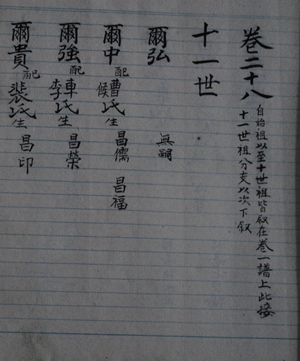 卷二十八
自始祖以至十世祖皆叙在卷一譜上此接
十一世祖分支以次下叙
十一世
爾弘 無嗣
爾中 配 曹氏 候氏 生 昌儒 昌福
爾強 配 車氏 李氏 生 昌榮
爾貴 配 裴氏 生 昌印